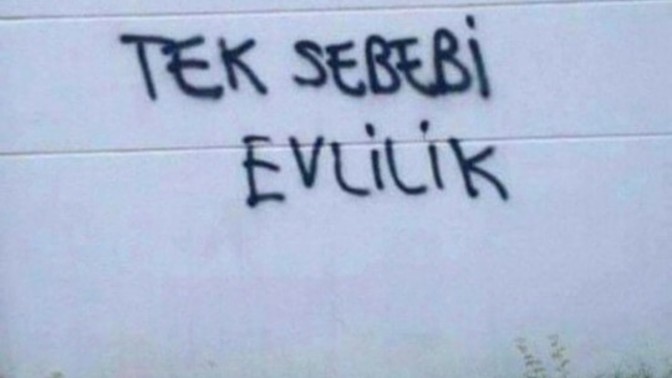 TEK SEBEBİ
EVLİLİK